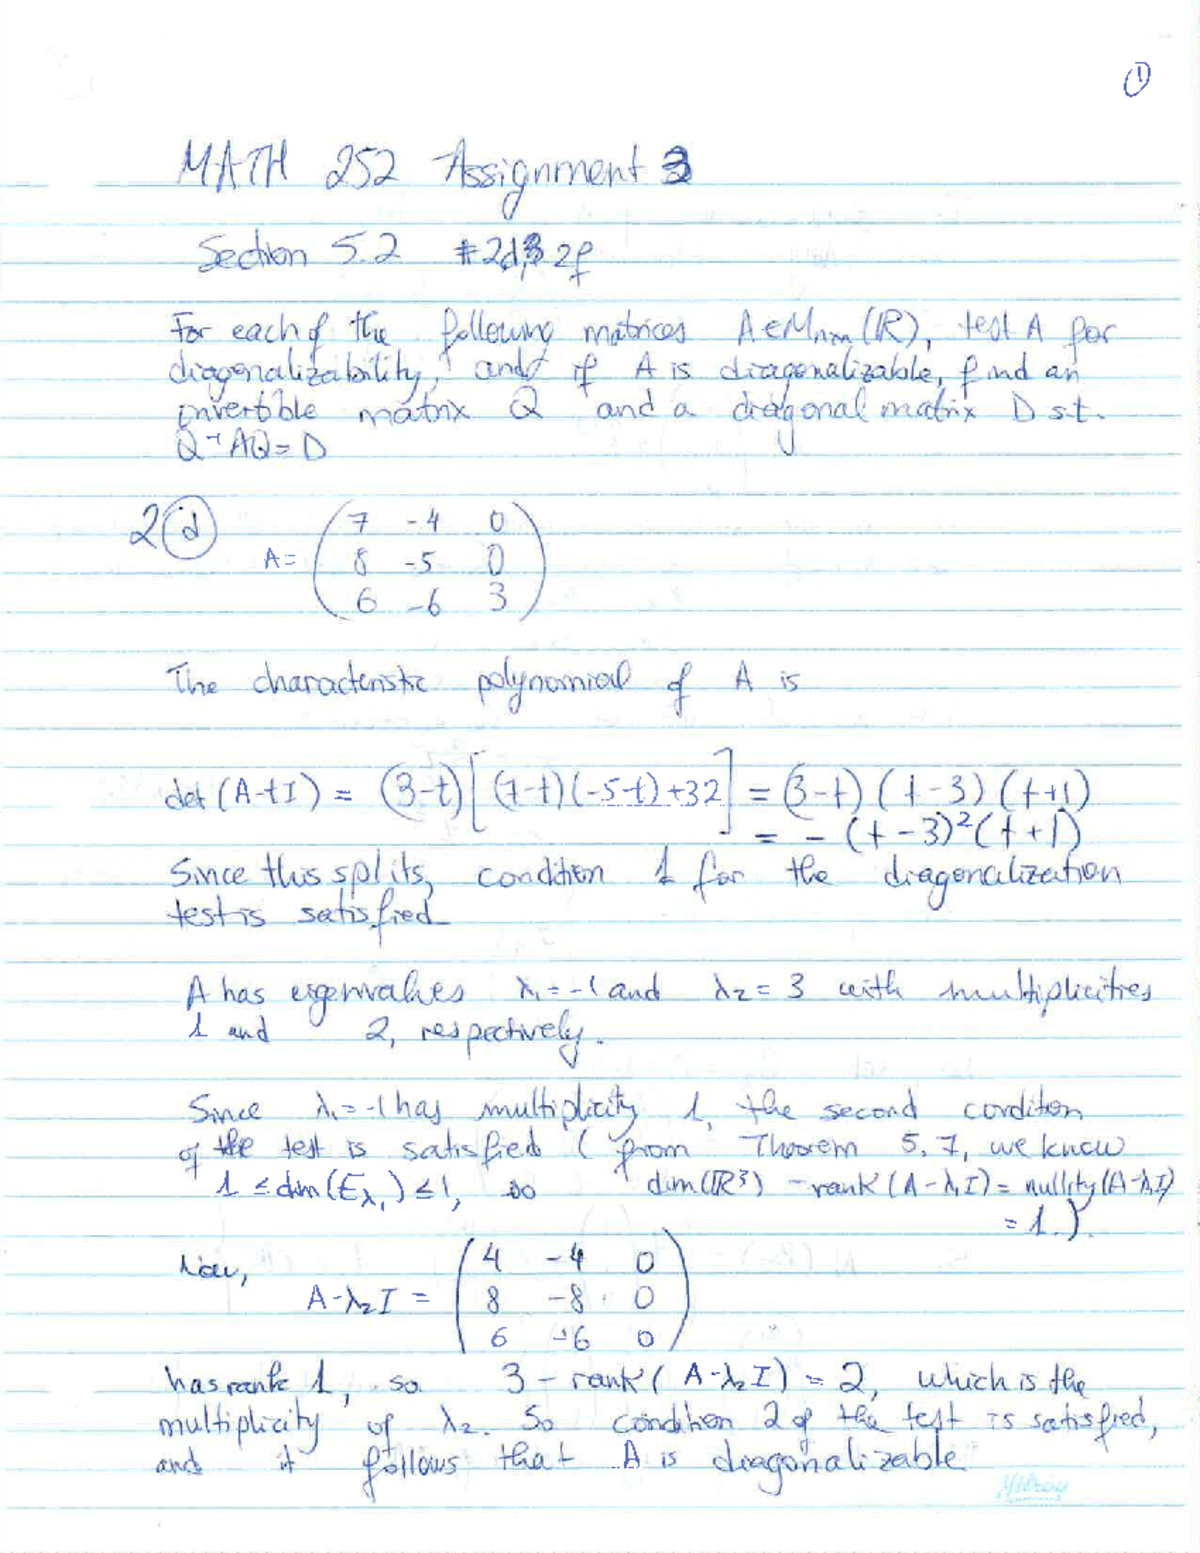 ①
MATH 252 Assignment 3
Section 5.2 #2d, 2f
For each of the following matrices A∈Mnxn(ℝ), test A for
diagonalizability, and if A is diagonalizable, find an
invertible matrix Q and a diagonal matrix D s.t.
Q⁻¹AQ = D
2(d)
A = ( 7 -4 0
8 -5 0
6 -6 3 )
The characteristic polynomial of A is
det(A-tI) = (3-t)[(7-t)(-5-t)+32] = (3-t)(t-3)(t+1)
= -(t-3)²(t+1)
Since this splits, condition 1 for the diagonalization
test is satisfied
A has eigenvalues λ₁=-1 and λ₂=3 with multiplicities
1 and 2, respectively.
Since λ₁=-1 has multiplicity 1, the second condition
of the test is satisfied (from Theorem 5.7, we know
1 ≤ dim(Eλ₁) ≤ 1, so dim(ℝ³) - rank(A-λ₁I) = nullity(A-λ₁I)
= 1.).
Now,
A-λ₂I = ( 4 -4 0
8 -8 0
6 -6 0 )
has rank 1, so 3 - rank(A-λ₂I) = 2, which is the
multiplicity of λ₂. So condition 2 of the test is satisfied,
and it follows that A is diagonalizable